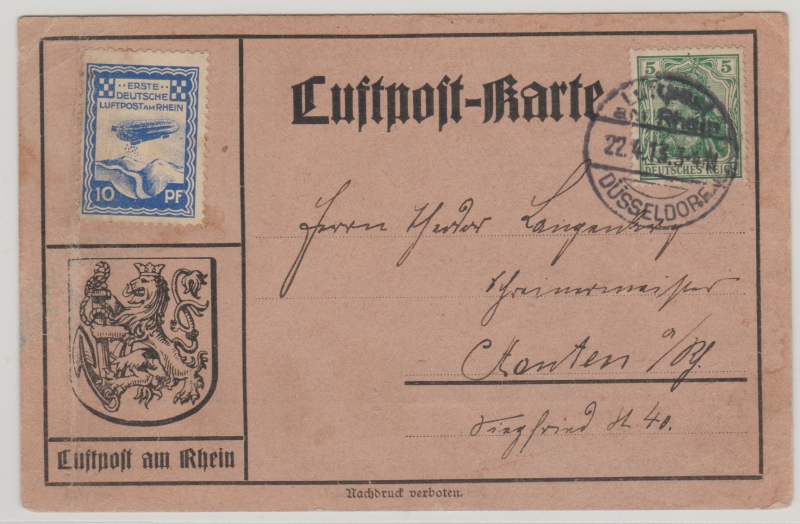 ERSTE
DEUTSCHE
LUFTPOST AM RHEIN
10 PF
Luftpost-Karte
5 5
DEUTSCHES REICH
Luftpost
am Rhein
22.4.13. 3-4 N
DÜSSELDORF
Herrn Theodor Langenberg
Schreinermeister
Xanten a/Rh.
Siegfried St. 40.
Luftpost am Rhein
Nachdruck verboten.